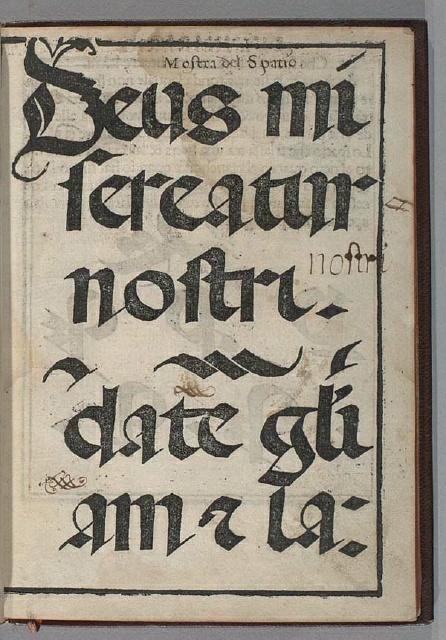 Mostra del Spatio
Deus mi
sereatur
nostri.
nostri
date gl̄i
am ⁊ la: